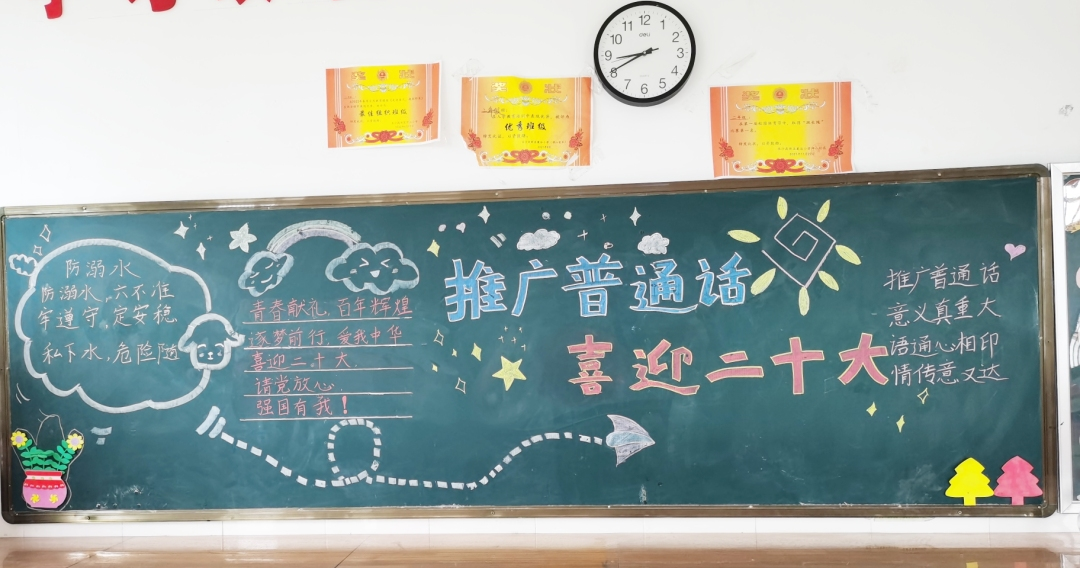 奖状
最佳组织班级
奖状
优秀班级
奖状
12
1
2
3
4
5
6
7
8
9
10
11
deli
防溺水
防溺水，六不准
牢遵守，定安稳
私下水，危险随
青春献礼，百年辉煌
逐梦前行，爱我中华
喜迎二十大，
请党放心，
强国有我！
推广普通话
喜迎二十大
推广普通话
意义真重大
语通心相印
情传意又达